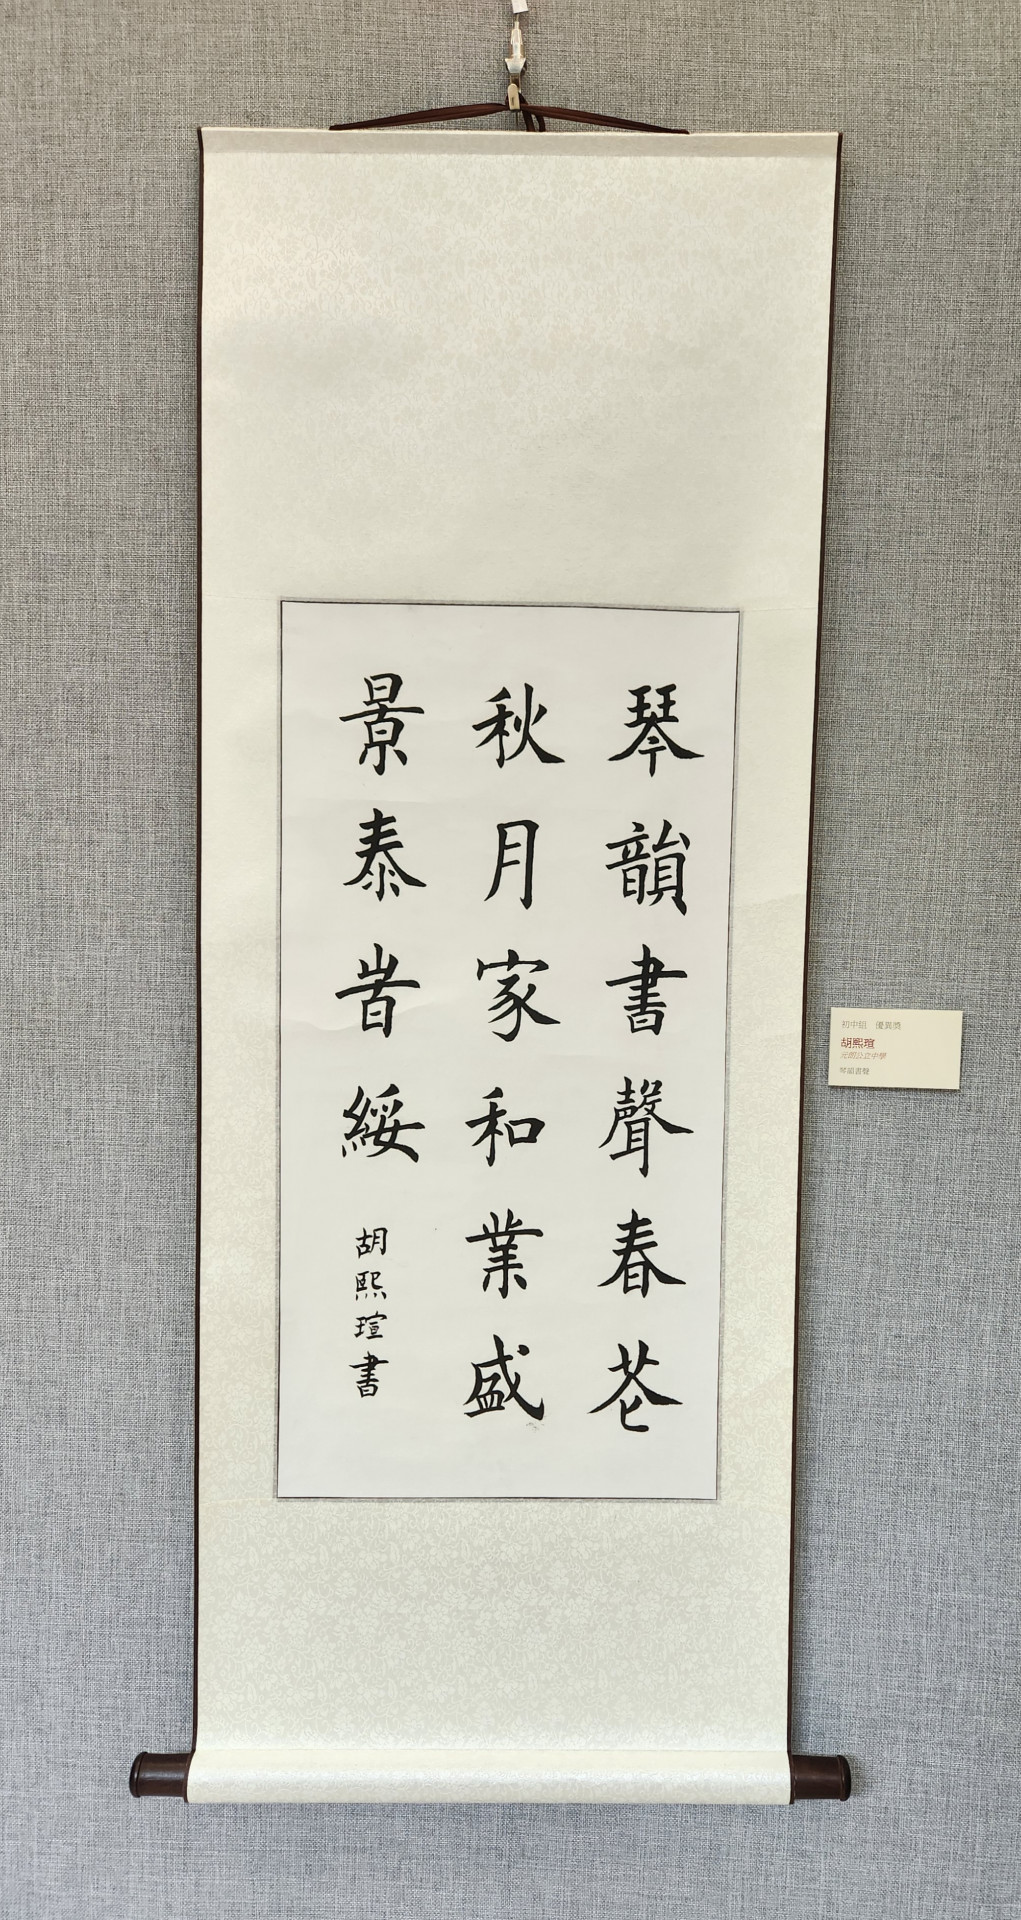 琴韻書聲春花
秋月家和業盛
景泰旹綏
胡熙瑄書
初中組 優異獎
胡熙瑄
元朗公立中學
琴韻書聲